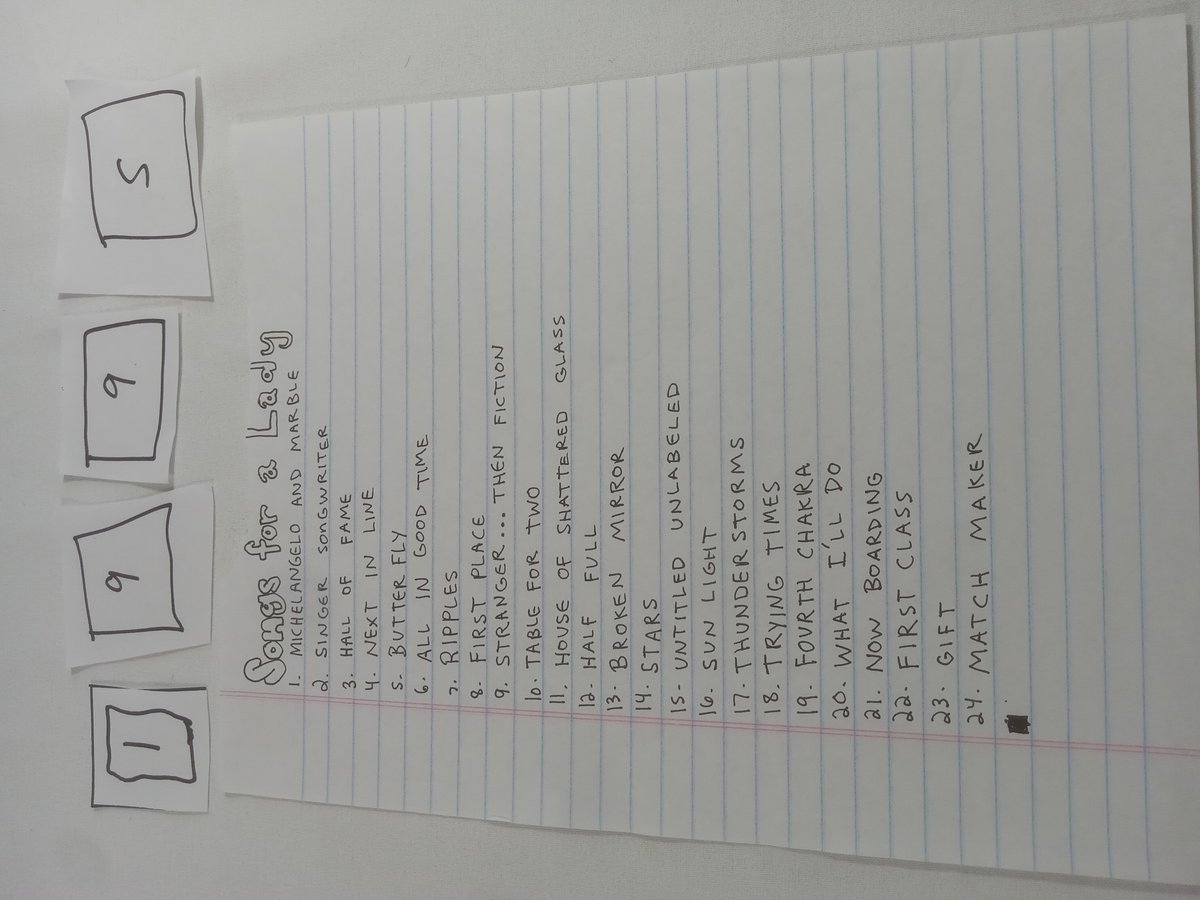 1 9 9 5
Songs for a Lady
1. MICHELANGELO AND MARBLE
2. SINGER SONGWRITER
3. HALL OF FAME
4. NEXT IN LINE
5. BUTTERFLY
6. ALL IN GOOD TIME
7. RIPPLES
8. FIRST PLACE
9. STRANGER... THEN FICTION
10. TABLE FOR TWO
11. HOUSE OF SHATTERED GLASS
12. HALF FULL
13. BROKEN MIRROR
14. STARS
15. UNTITLED UNLABELED
16. SUN LIGHT
17. THUNDERSTORMS
18. TRYING TIMES
19. FOURTH CHAKRA
20. WHAT I'LL DO
21. NOW BOARDING
22. FIRST CLASS
23. GIFT
24. MATCH MAKER